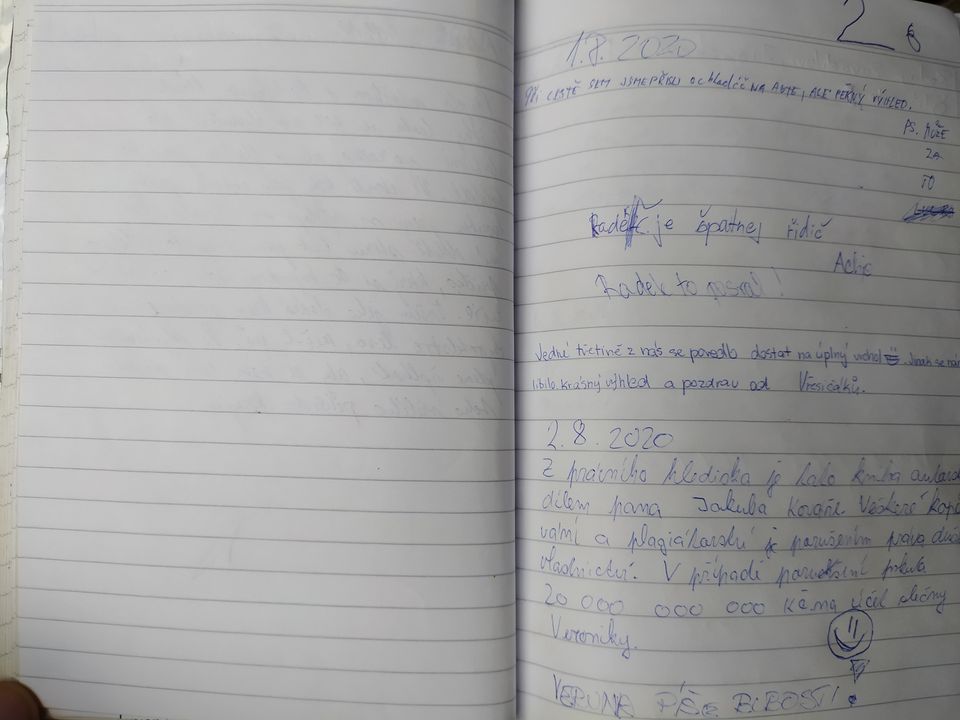 2
1.8.2020
Při cestě sem jsme přišli o chladič NA AUTE, ALE PĚKNÝ VÝHLED.
PS. MŮŽE
ZA
TO
Raděk je špatnej řidič
Radek to posral!
Jedné třetině z nás se povedlo dostat na úplný vrchol Jinak se nám
líbilo. Krásný výhled a pozdrav od Vřesičáků.
2.8.2020
Z právního hlediska je tato kniha autorsk
dílem pana Jakuba Kováře. Veškeré kopí
vání a plagiátorství je porušením práva duš
vlastnictví. V případě porušení pokuta
20 000 000 000 Kč na účet slečny
Veroniky.
VERUNA PÍŠE BLBOSTI!